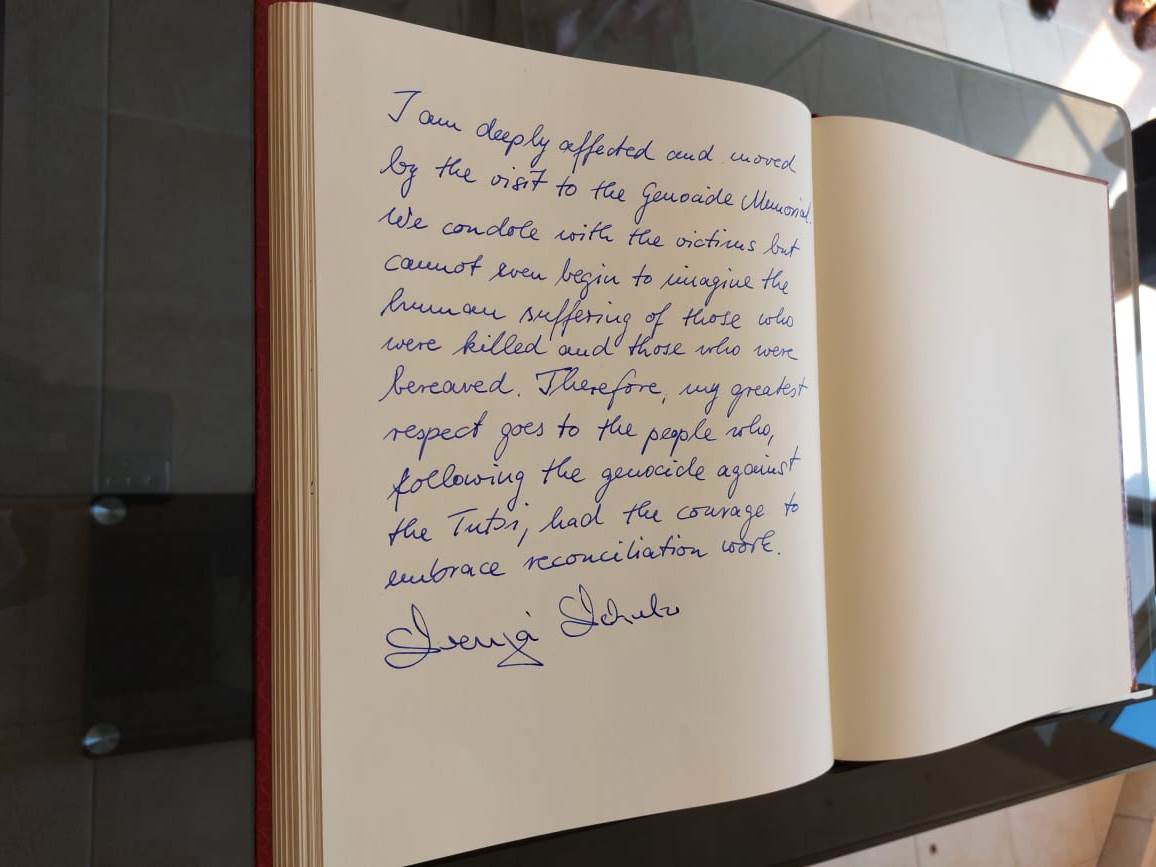 I am deeply affected and moved
by the visit to the Genocide Memorial.
We condole with the victims but
cannot even begin to imagine the
human suffering of those who
were killed and those who were
bereaved. Therefore, my greatest
respect goes to the people who,
following the genocide against
the Tutsi, had the courage to
embrace reconciliation work.
Svenja Schulze